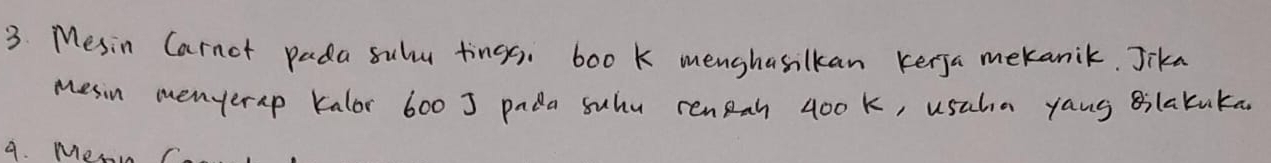 3. Mesin Carnot pada suhu tinggi 600 K menghasilkan kerja mekanik. Jika
Mesin menyerap kalor 600 J pada suhu rendah 400 K, usaha yang dilakukan
4. Mesin